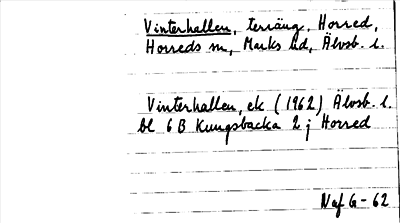 Vinterhallen, terräng, Horred,
Horreds sn, Marks hd, Älvsb. l.
Vinterhallen, ek (1962) Älvsb. l.
bl 6 B Kungsbacka 2 j Horred
Naf G - 62